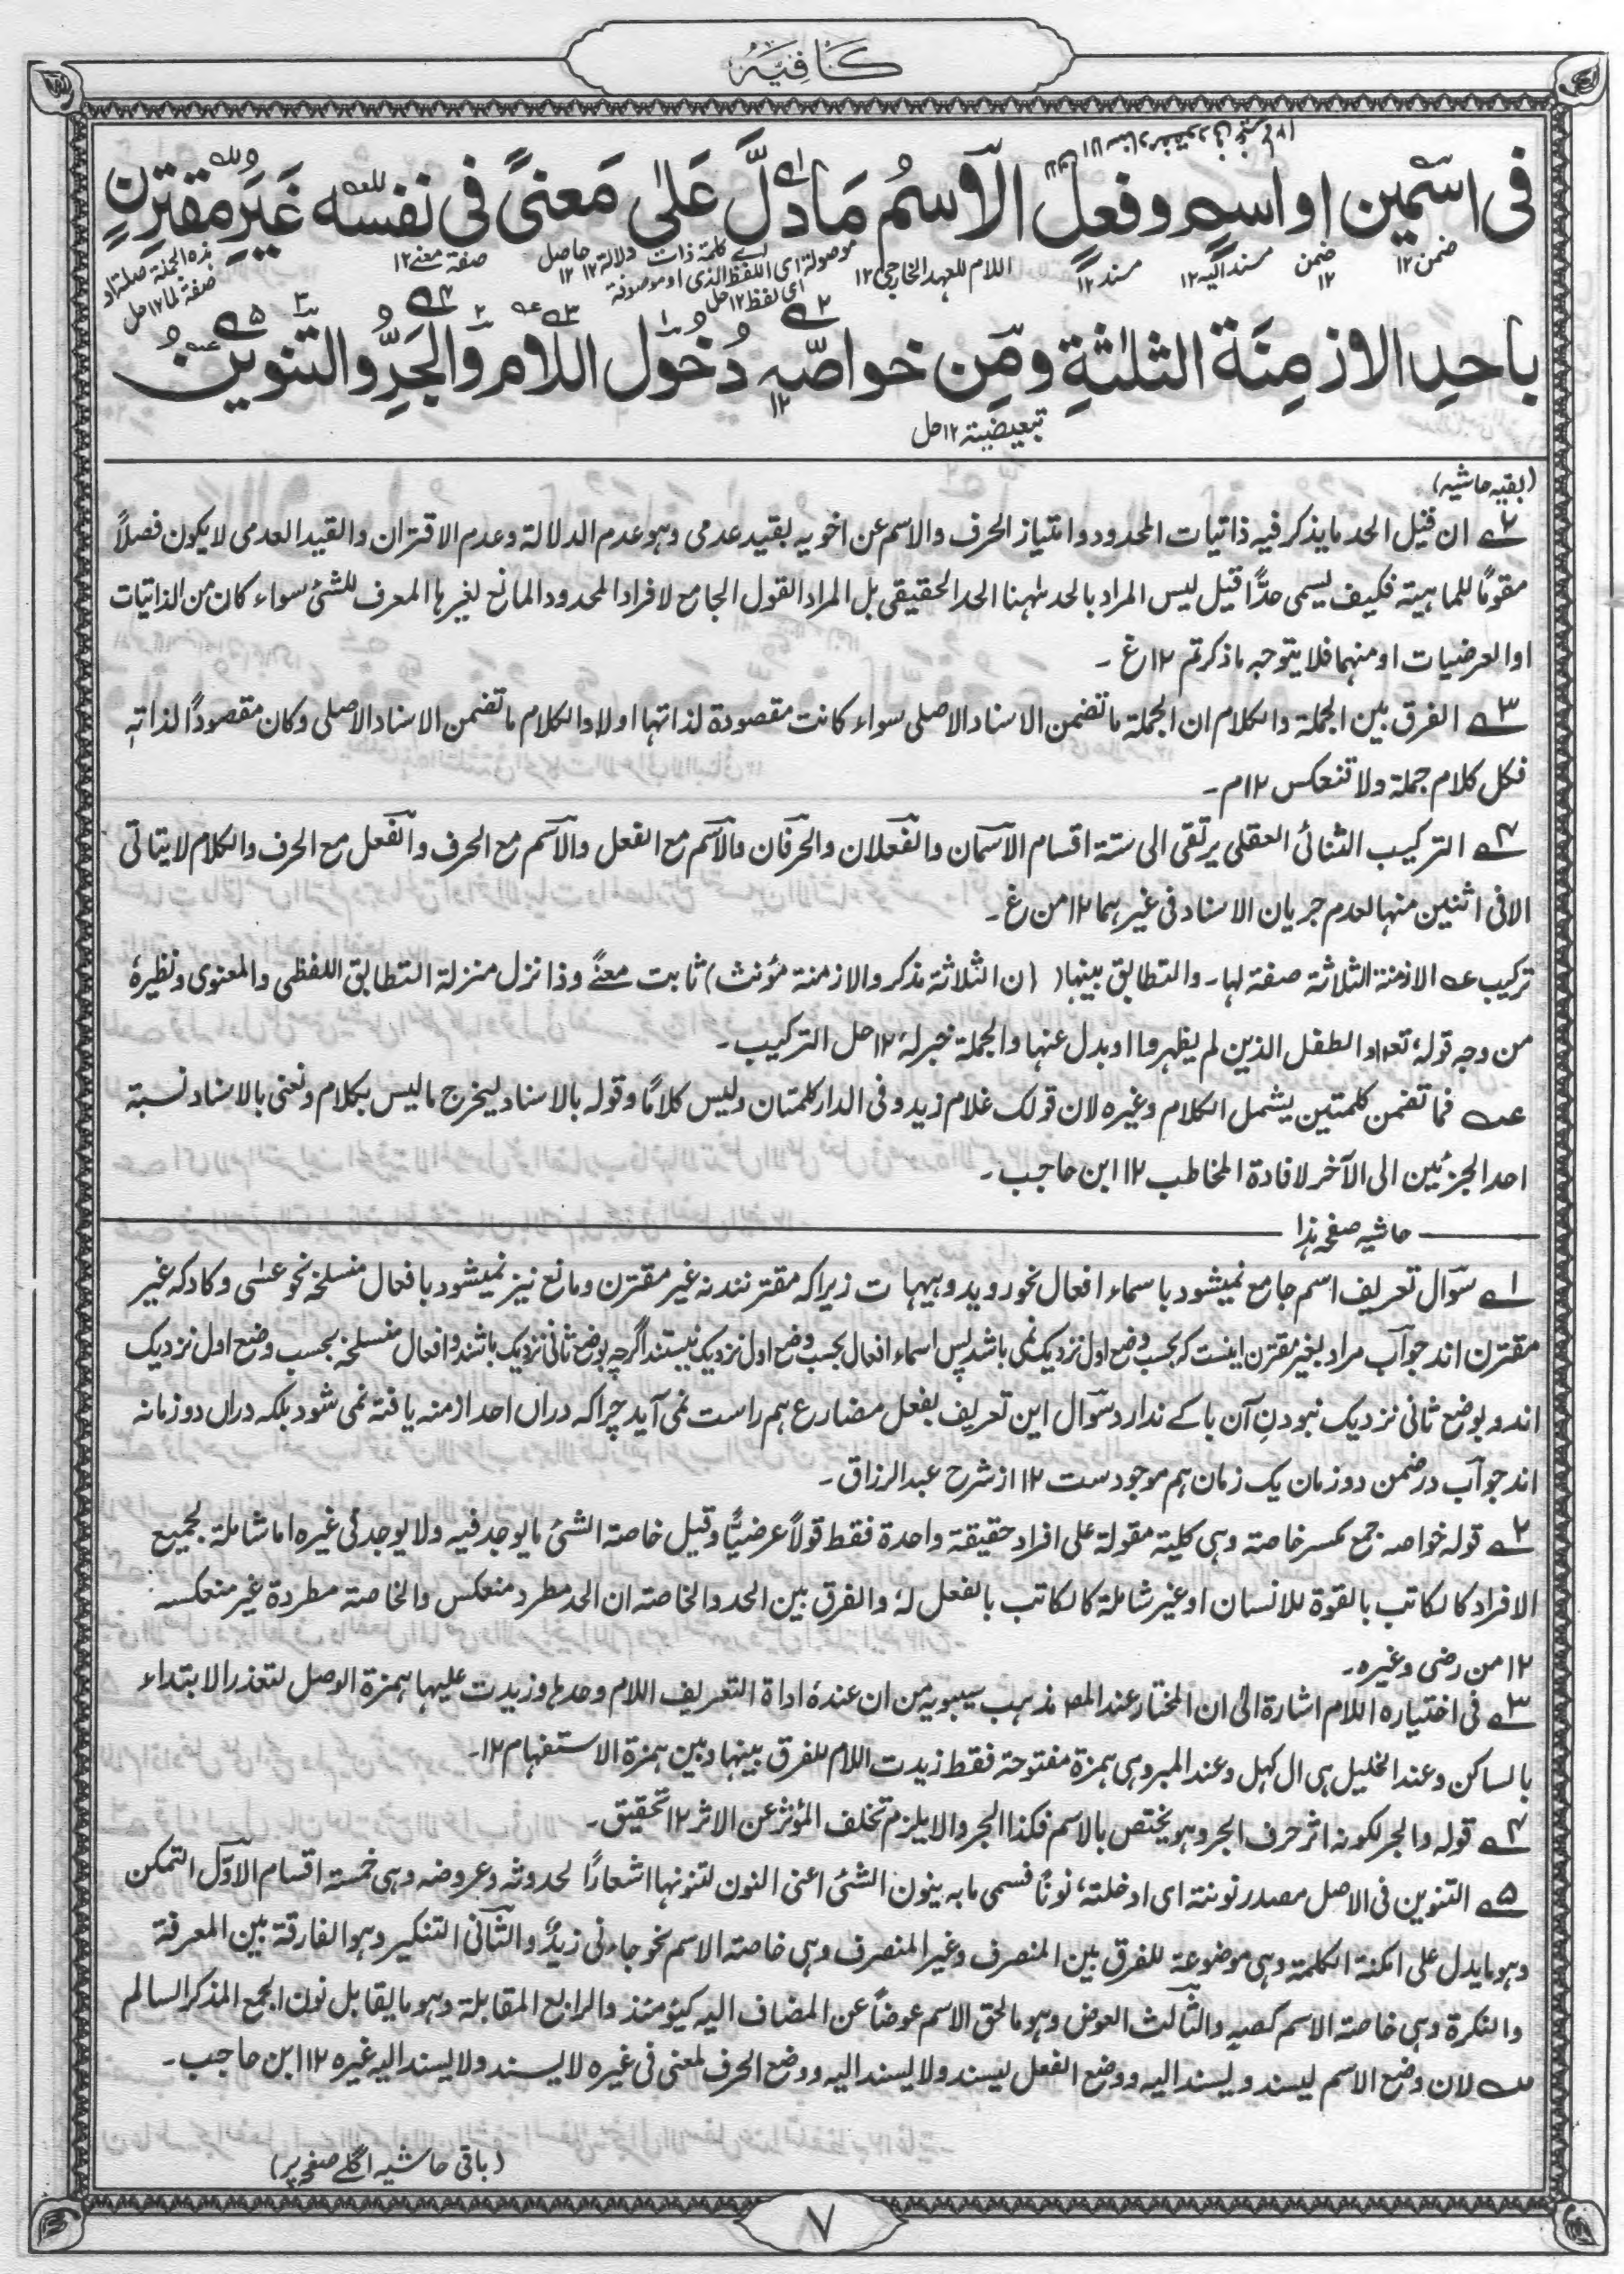 كَافِيَه
فى اسْمين او اسمٍ وفعلٍ الْاسمُ مَا دَلَّ عَلٰى مَعنىً فى نفسه غَيرِ مقترنٍ
ضمن ١٢ ضمن ١٢ مسند اليه ١٢ مسند ١٢ اللام للعهد الخارجى ١٢ موصولة اى اللفظ الذى او موصوفة اى لفظ ١٢ حل اے كلمة ذات دلالة ١٢ حاصل ١٢ صفة معنے ١٢ هذه الجملة صلة او صفة لما ١٢ حل
باحدِ الازمِنَة الثلٰثةِ ومِن خواصّه دُخول اللام والجَرِّ والتنوين
تبعيضية ١٢ حل
(بقيه حاشيه)
٢؎ ان قيل الحد ما يذكر فيه ذاتيات المحدود وامتياز الحرف والاسم عن اخويه بقيد عدمى وهو عدم الدلالة وعدم الاقتران والقيد العدمى لا يكون فصلاً
مقومًا للماهية فكيف يسمى حدًّا قيل ليس المراد بالحد ههنا الحد الحقيقى بل المراد القول الجامع لافراد المحدود المانع لغيرها المعرف للشئ سواء كان من الذاتيات
او العرضيات او منهما فلا يتوجه ما ذكرتم ١٢ غ ۔
٣؎ الفرق بين الجملة والكلام ان الجملة ما تضمن الاسناد الاصلى سواء كانت مقصودة لذاتها او لا والكلام ما تضمن الاسناد الاصلى وكان مقصودًا لذاته
فكل كلام جملة ولا تنعكس ١٢ م ۔
٤؎ التركيب الثنائى العقلى يرتقى الى ستة اقسام الاسمان والفعلان والحرفان والاسم مع الفعل والاسم مع الحرف والفعل مع الحرف والكلام لا يتاتى
الا فى اثنين منها لعدم جريان الاسناد فى غيرهما ١٢ من غ ۔
تركيب عہ الازمنة الثلاثة صفة لها۔ والتطابق بينها (ان الثلاثة مذكر والازمنة مؤنث) ثابت معنًے وذا نزل منزلة التطابق اللفظى والمعنوى ونظيرهٗ
من وجه قولهٗ تعہ او الطفل الذين لم يظهروا او بدل عنها والجملة خبر لهٗ ١٢ حل التركيب ۔
عہ فما تضمن كلمتين يشمل الكلام وغيره لان قولك غلام زيد وفى الدار كلمتان وليس كلامًا وقوله بالاسناد ليخرج ما ليس بكلام ونعنى بالاسناد نسبة
احد الجزئين الى الآخر لافادة المخاطب ١٢ ابن حاجب ۔
حاشيه صفحه هذا
١؎ سوال تعريف اسم جامع نميشود با سماء افعال نحو رويد وهيهات زيرا كه مقترنند نه غير مقترن ومانع نيز نميشود با فعال منسلخه نحو عسٰى وكاد كه غير
مقترن اند جواب مراد بغير مقترن اينست كه بحسب وضع اول نزديك نمى باشد پس اسماء افعال بحسب وضع اول نزديك نيستند اگر چه بوضع ثانى نزديك باشند وافعال منسلخه بحسب وضع اول نزديك
اند و بوضع ثانى نزديك نبودنِ آن باكے ندارد سوال اين تعريف بفعل مضارع هم راست نمى آيد چرا كه دران احد ازمنه يافته نمى شود بلكه دران دو زمانه
اند جواب در ضمن دو زمان يك زمان هم موجودست ١٢ از شرح عبد الرزاق ۔
٢؎ قوله خواصه جمع مكسر خاصة وهى كلية مقولة على افراد حقيقة واحدة فقط قولاً عرضيًّا وقيل خاصة الشئ ما يوجد فيه ولا يوجد فى غيره اما شاملة لجميع
الافراد كالكاتب بالقوة للانسان او غير شاملة كالكاتب بالفعل لهٗ والفرق بين الحد والخاصة ان الحد مطرد منعكس والخاصة مطردة غير منعكسه
١٢ من رضى وغيره ۔
٣؎ فى اختياره اللام اشارة الى ان المختار عند المصہ مذهب سيبويه من ان عندهٗ اداة التعريف اللام وحدها وزيدت عليها همزة الوصل لتعذر الابتداء
بالساكن وعند الخليل هى ال كهل وعند المبرد هى همزة مفتوحة فقط زيدت اللام للفرق بينها وبين همزة الاستفهام ١٢۔
٤؎ قوله والجر لكونه اثر حرف الجر وهو يختص بالاسم فكذا الجر والا يلزم تخلف المؤثر عن الاثر ١٢ تحقيق ۔
٥؎ التنوين فى الاصل مصدر نونتة اى ادخلتهٗ نونًا فسمى ما به ينون الشئ اعنى النون لتنونها اشعارًا لحدوثه وعروضه وهى خمسة اقسام الاوّل التمكن
وهو ما يدل على امكنة الكلمة وهى موضوعة للفرق بين المنصرف وغير المنصرف وهى خاصة الاسم نحو جاءنى زيدٌ والثانى التنكير وهو الفارقة بين المعرفة
والنكرة وهى خاصة الاسم كصهٍ والثالث العوض وهو ما لحق الاسم عوضًا عن المضاف اليه كيومئذ والرابع المقابلة وهو ما يقابل نون الجمع المذكر السالم
؎ لان وضع الاسم ليسند ويسند اليه ووضع الفعل ليسند ولا يسند اليه ووضع الحرف لمعنى فى غيره لا يسند ولا يسند اليه غيره ١٢ ابن حاجب ۔
(باقى حاشيه اگلے صفحه پر)
٧